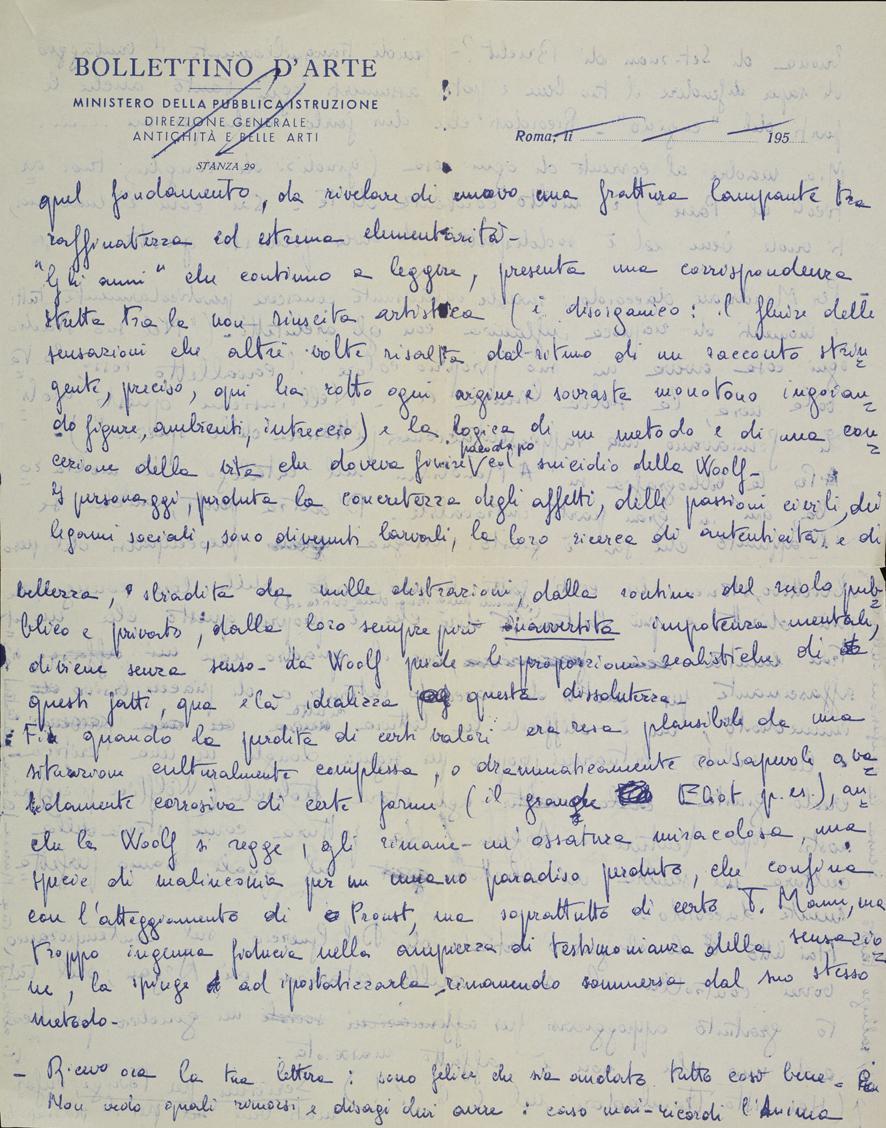 BOLLETTINO D'ARTE
MINISTERO DELLA PUBBLICA ISTRUZIONE
DIREZIONE GENERALE
ANTICHITÀ E BELLE ARTI
STANZA 29
Roma, li 195
quel fondamento, da rivelare di nuovo una frattura lampante tra
raffinatezza ed estrema elementarità-
"Gli anni" che continuo a leggere, presenta una corrispondenza
stretta tra la non riuscita artistica (è disorganico: il fluire delle
sensazioni che altre volte risalta dal ritmo di un racconto strin=
gente, preciso, qui ha rotto ogni argine e sovrasta monotono ingoian=
do figure, ambienti, intreccio) e la logica di un metodo e di una con=
cezione della vita che doveva finire col suicidio della Woolf-
I personaggi, perduta la concretezza degli affetti, delle passioni civili, dei
legami sociali, sono divenuti larvali, la loro ricerca di autenticità, e di
bellezza, sbiadita da mille distrazioni, dalla routine del ruolo pub=
blico e privato, dalla loro sempre più inavvertita impotenza mentale,
diviene senza senso- La Woolf perde le proporzioni realistiche di
questi fatti, qua e là idealizza questa dissolutezza-
Fin quando la perdita di certi valori era resa plausibile da una
situazione culturalmente complessa, o drammaticamente consapevole
corrosiva di certe forme (il grande Eliot p. es.), an
che la Woolf si regge, gli rimane un'ossatura miracolosa, una
specie di malinconia per un umano paradiso perduto, che confina
con l'atteggiamento di Proust, ma soprattutto di certo T. Mann, ma
troppo ingenua fiducia nella ampiezza di testimonianza della sensazio=
ne, la spinge ad ipostatizzarla rimanendo sommersa dal suo stesso
metodo-
- Ricevo ora la tua lettera: sono felice che sia andato tutto così bene-
Non vedo quali rimorsi e disagi devi avere: caso mai-ricordi l'Anima